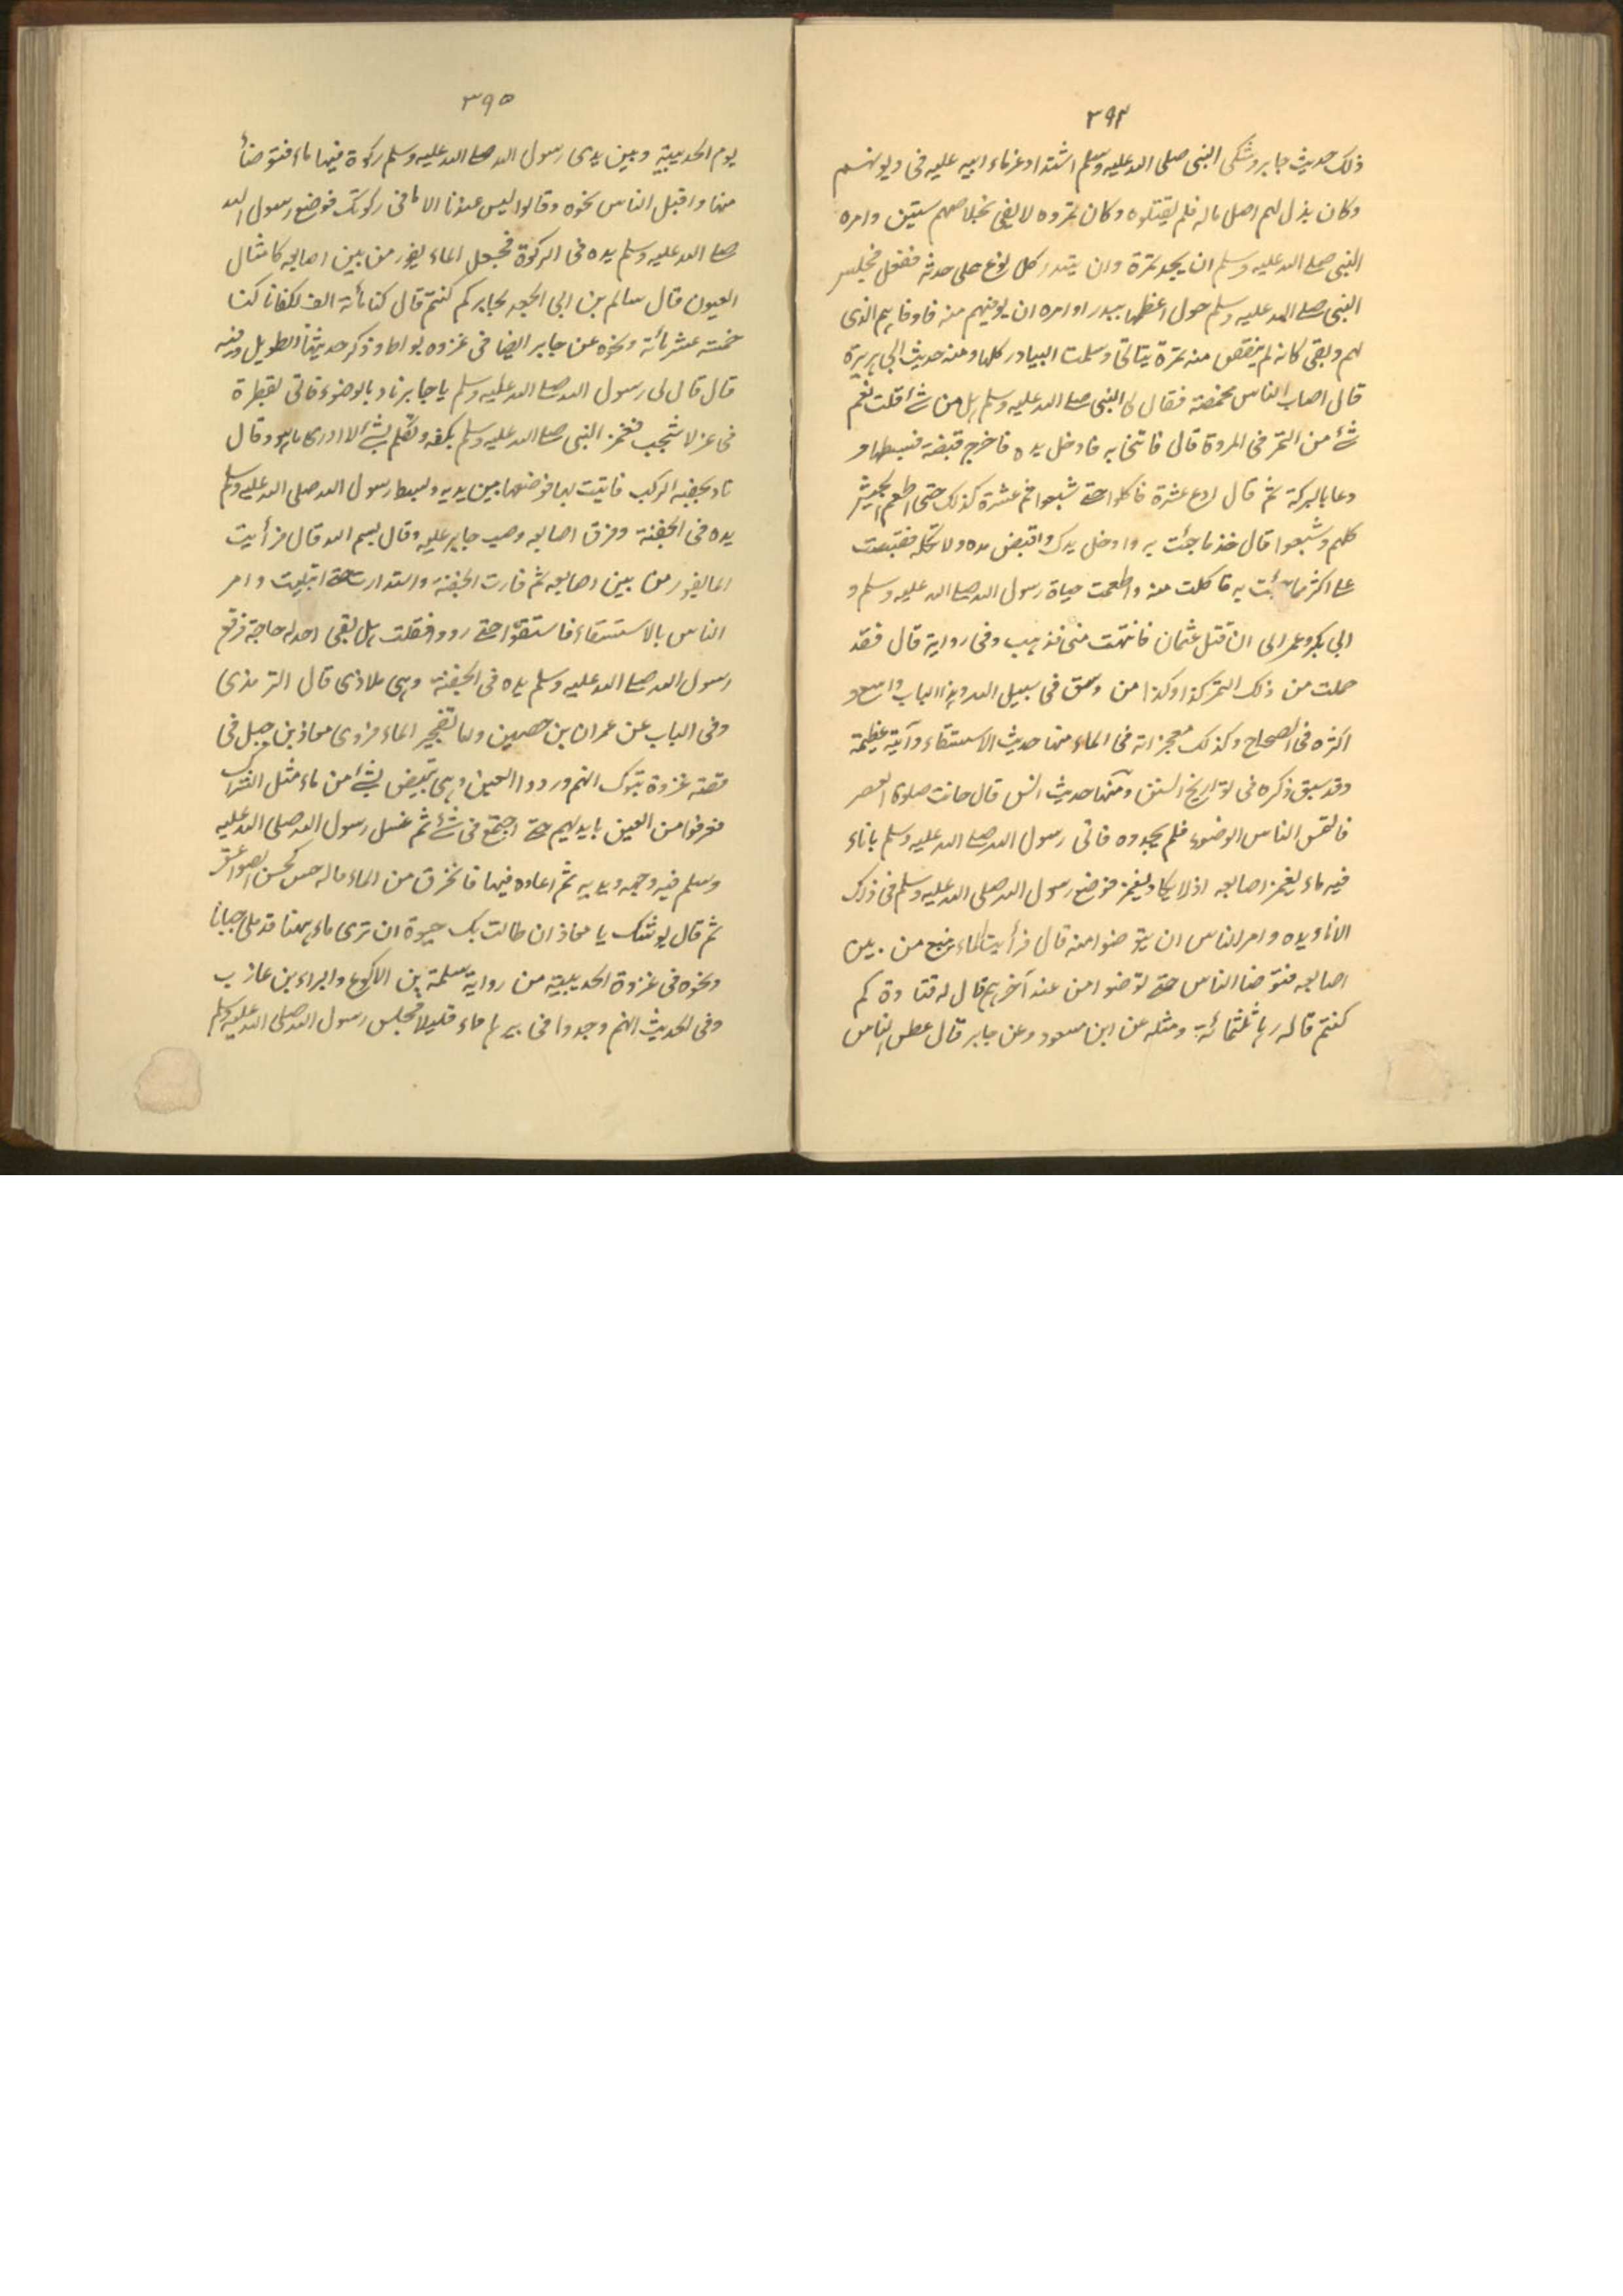 ٣٩٤
ذلك حديث جابر وشكى النبى صلى الله عليه وسلم اشتداد غرماء ابيه عليه فى ديونهم
وكان بذل لهم اصل ماله فلم يقبلوه وكان تمره لا يفى بخلاصهم سنتين وامره
النبى صلى الله عليه وسلم ان يجد تمرة وان يبتدر كل نوع على حدته ففعل فجلس
النبى صلى الله عليه وسلم حول اعظمها بيدرا وامره ان يوفيهم منه فاوفاهم الذى
لهم وبقى كانه لم ينقص منه تمرة وسلمت البيادر كلها ومنه حديث ابى هريرة
قال اصاب الناس مخمصة فقال لى النبى صلى الله عليه وسلم هل من شئ قلت نعم
شئ من التمر فى المزودة قال فاتنى به فادخل يده فاخرج قبضة فبسطها و
دعا بالبركة ثم قال ادع عشرة فاكلوا حتى شبعوا ثم عشرة كذلك حتى اطعم الجيش
كلهم وشبعوا قال خذ ما جئت به وادخل يدك واقبض منه ولا تكبه فقبضت
على اكثر مما جئت به فاكلت منه واطعمت حياة رسول الله صلى الله عليه وسلم و
ابى بكر وعمر الى ان قتل عثمان فانتهت منى فذهب وفى رواية قال فقد
حملت من ذلك التمر كذا وكذا من وسق فى سبيل الله وهذا الباب واسع و
اكثره فى الصحاح وكذلك معجزاته فى الماء منها حديث الاستسقاء وآية عظيمة
وقد سبق ذكره فى تواريخ السنن ومنها حديث انس قال حانت صلوة العصر
فالتمس الناس الوضوء فلم يجدوه فاتى رسول الله صلى الله عليه وسلم باناء
فيه ماء يغمر اصابعه اذ لا يكاد يغمر فوضع رسول الله صلى الله عليه وسلم فى ذلك
الاناء يده وامر الناس ان يتوضوا منه قال فرأيت الماء ينبع من بين
اصابعه فتوضا الناس حتى توضوا من عند آخرهم قال له قتادة كم
كنتم قال زهاء ثلثمائة ومثله عن ابن مسعود وعن جابر قال عطس الناس
٣٩٥
يوم الحديبية وبين يدى رسول الله صلى الله عليه وسلم ركوة فيها ماء فتوضأ
منها واقبل الناس نحوه وقالوا ليس عندنا الا ما فى ركوتك فوضع رسول الله
صلى الله عليه وسلم يده فى الركوة فجعل الماء يفور من بين اصابعه كامثال
العيون قال سالم بن ابى الجعد لجابر كم كنتم قال كنا مائة الف لكفانا كنا
خمسة عشر مائة ونحوه عن جابر ايضا فى غزوه بواط وذكر حديثنا الطويل وفيه
قال قال لى رسول الله صلى الله عليه وسلم يا جابر ناد بالوضوء فاتى بقطرة
فى عزلا شجب فغمز النبى صلى الله عليه وسلم بكفه وتكلم بشئ لا ادرى ما هو وقال
ناد بجفنة الركب فاتيت بها فوضعها بين يديه وبسط رسول الله صلى الله عليه وسلم
يده فى الجفنة وفرق اصابعه وصب جابر عليه وقال بسم الله قال فرأيت
الما يفور من بين اصابعه ثم فارت الجفنة واستدارت حتى امتلئت وامر
الناس بالاستسقاء فاستقوا حتى رووا فقلت هل بقى احد له حاجة فرفع
رسول الله صلى الله عليه وسلم يده فى الجفنة وهى ملاذى قال الترمذى
وفى الباب عن عمران بن حصين ولما تفجير الماء فروى معاذ بن جبل فى
قصة غزوة تبوك انهم وردوا العين وهى تبض بشئ من ماء مثل الشراك
فغرفوا من العين بايديهم حتى اجتمع فى شئ ثم غسل رسول الله صلى الله عليه
وسلم فيه وجهه ويديه ثم اعاده فيها فانخرق من الماء ماله حس كحس الصواعق
ثم قال يوشك يا معاذ ان طالت بك حيوة ان ترى ماء ههنا قد ملى جنانا
ونحوه فى غزوة الحديبية من رواية سلمة بن الاكوع والبراء بن عازب
وفى الحديث انهم وجدوا فى بيرها ماء قليلا فجلس رسول الله صلى الله عليه وسلم